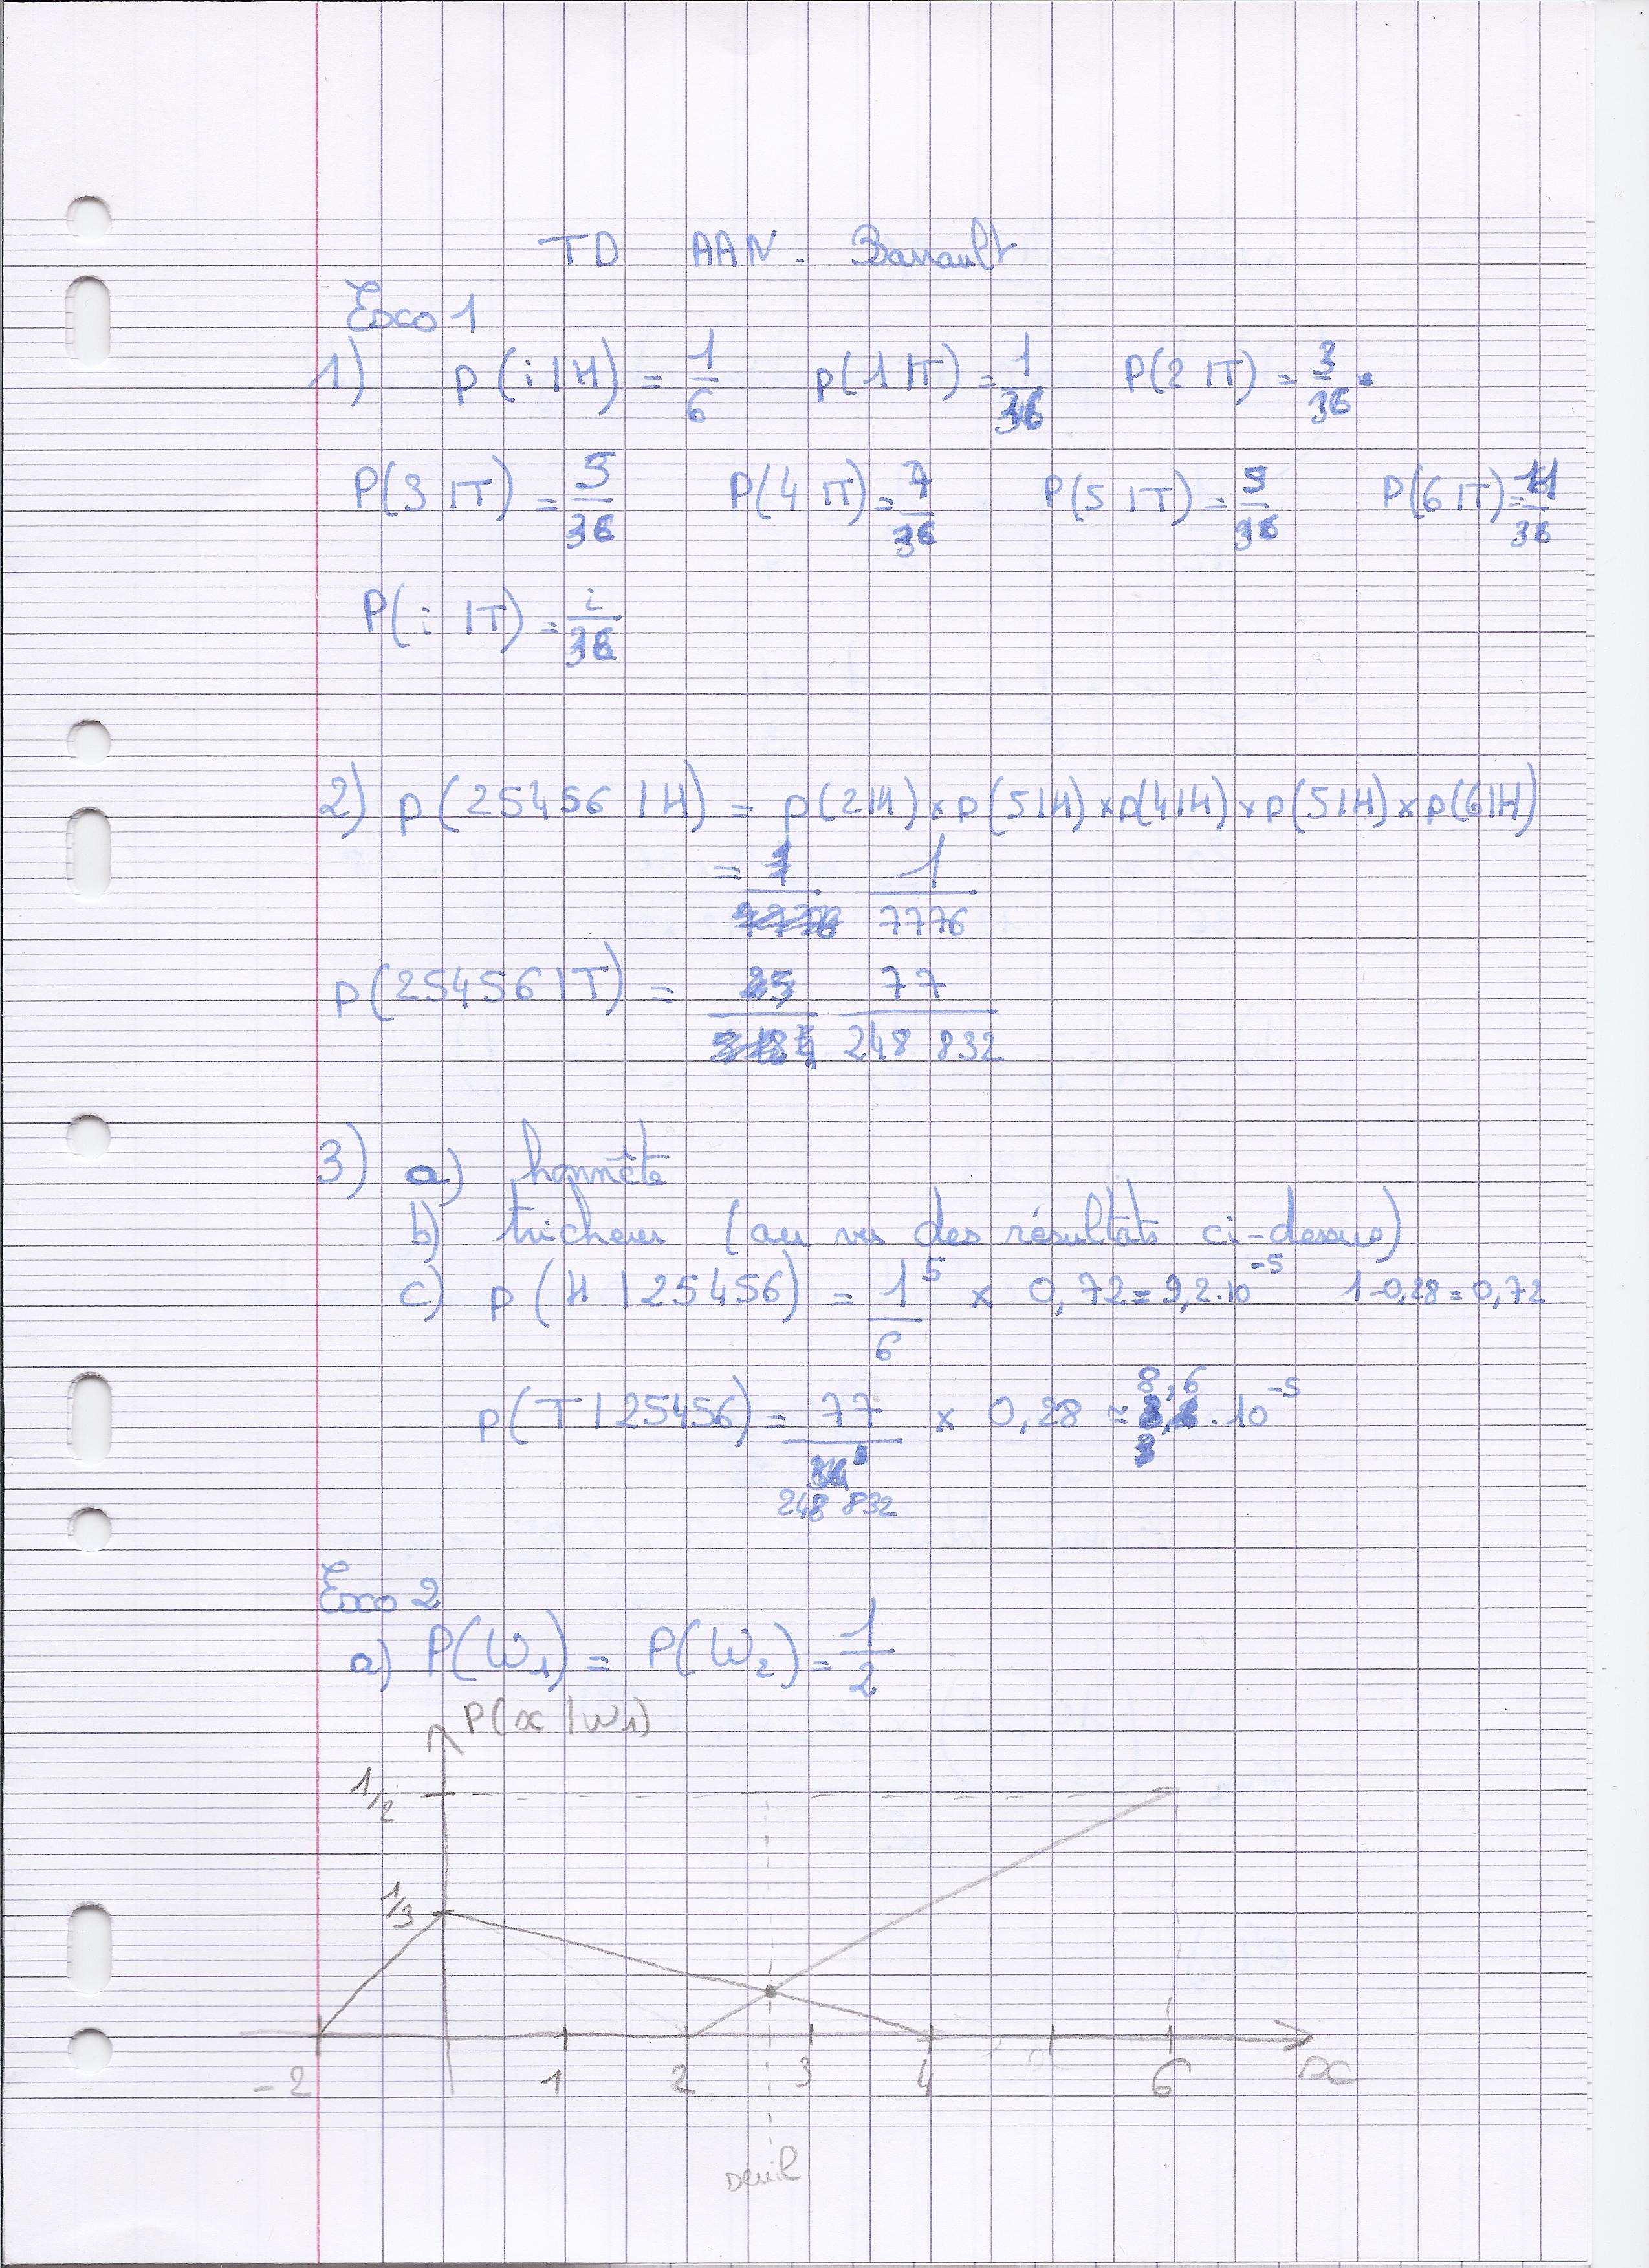 TD AAN - Barrault
Exo 1
1) p(i|H) = 1/6 p(1|T) = 1/36 P(2|T) = 3/36
P(3|T) = 5/36 P(4|T) = 7/36 P(5|T) = 9/36 P(6|T) = 11/36
P(i|T) = i/36
2) p(25456|H) = p(2|H) × p(5|H) × p(4|H) × p(5|H) × p(6|H)
= 1/7776 1/7776
p(25456|T) = 77/248 832
3) a) honnête
b) tricheur (au vu des résultats ci-dessus)
c) p(H|25456) = 1/6^5 × 0,72 = 9,2.10^-5 1-0,28 = 0,72
p(T|25456) = 77/248 832 × 0,28 ≈ 8,6.10^-5
Exo 2
a) P(W1) = P(W2) = 1/2
P(x|w1)
1/2
1/3
-2 1 2 3 4 6 x
seuil